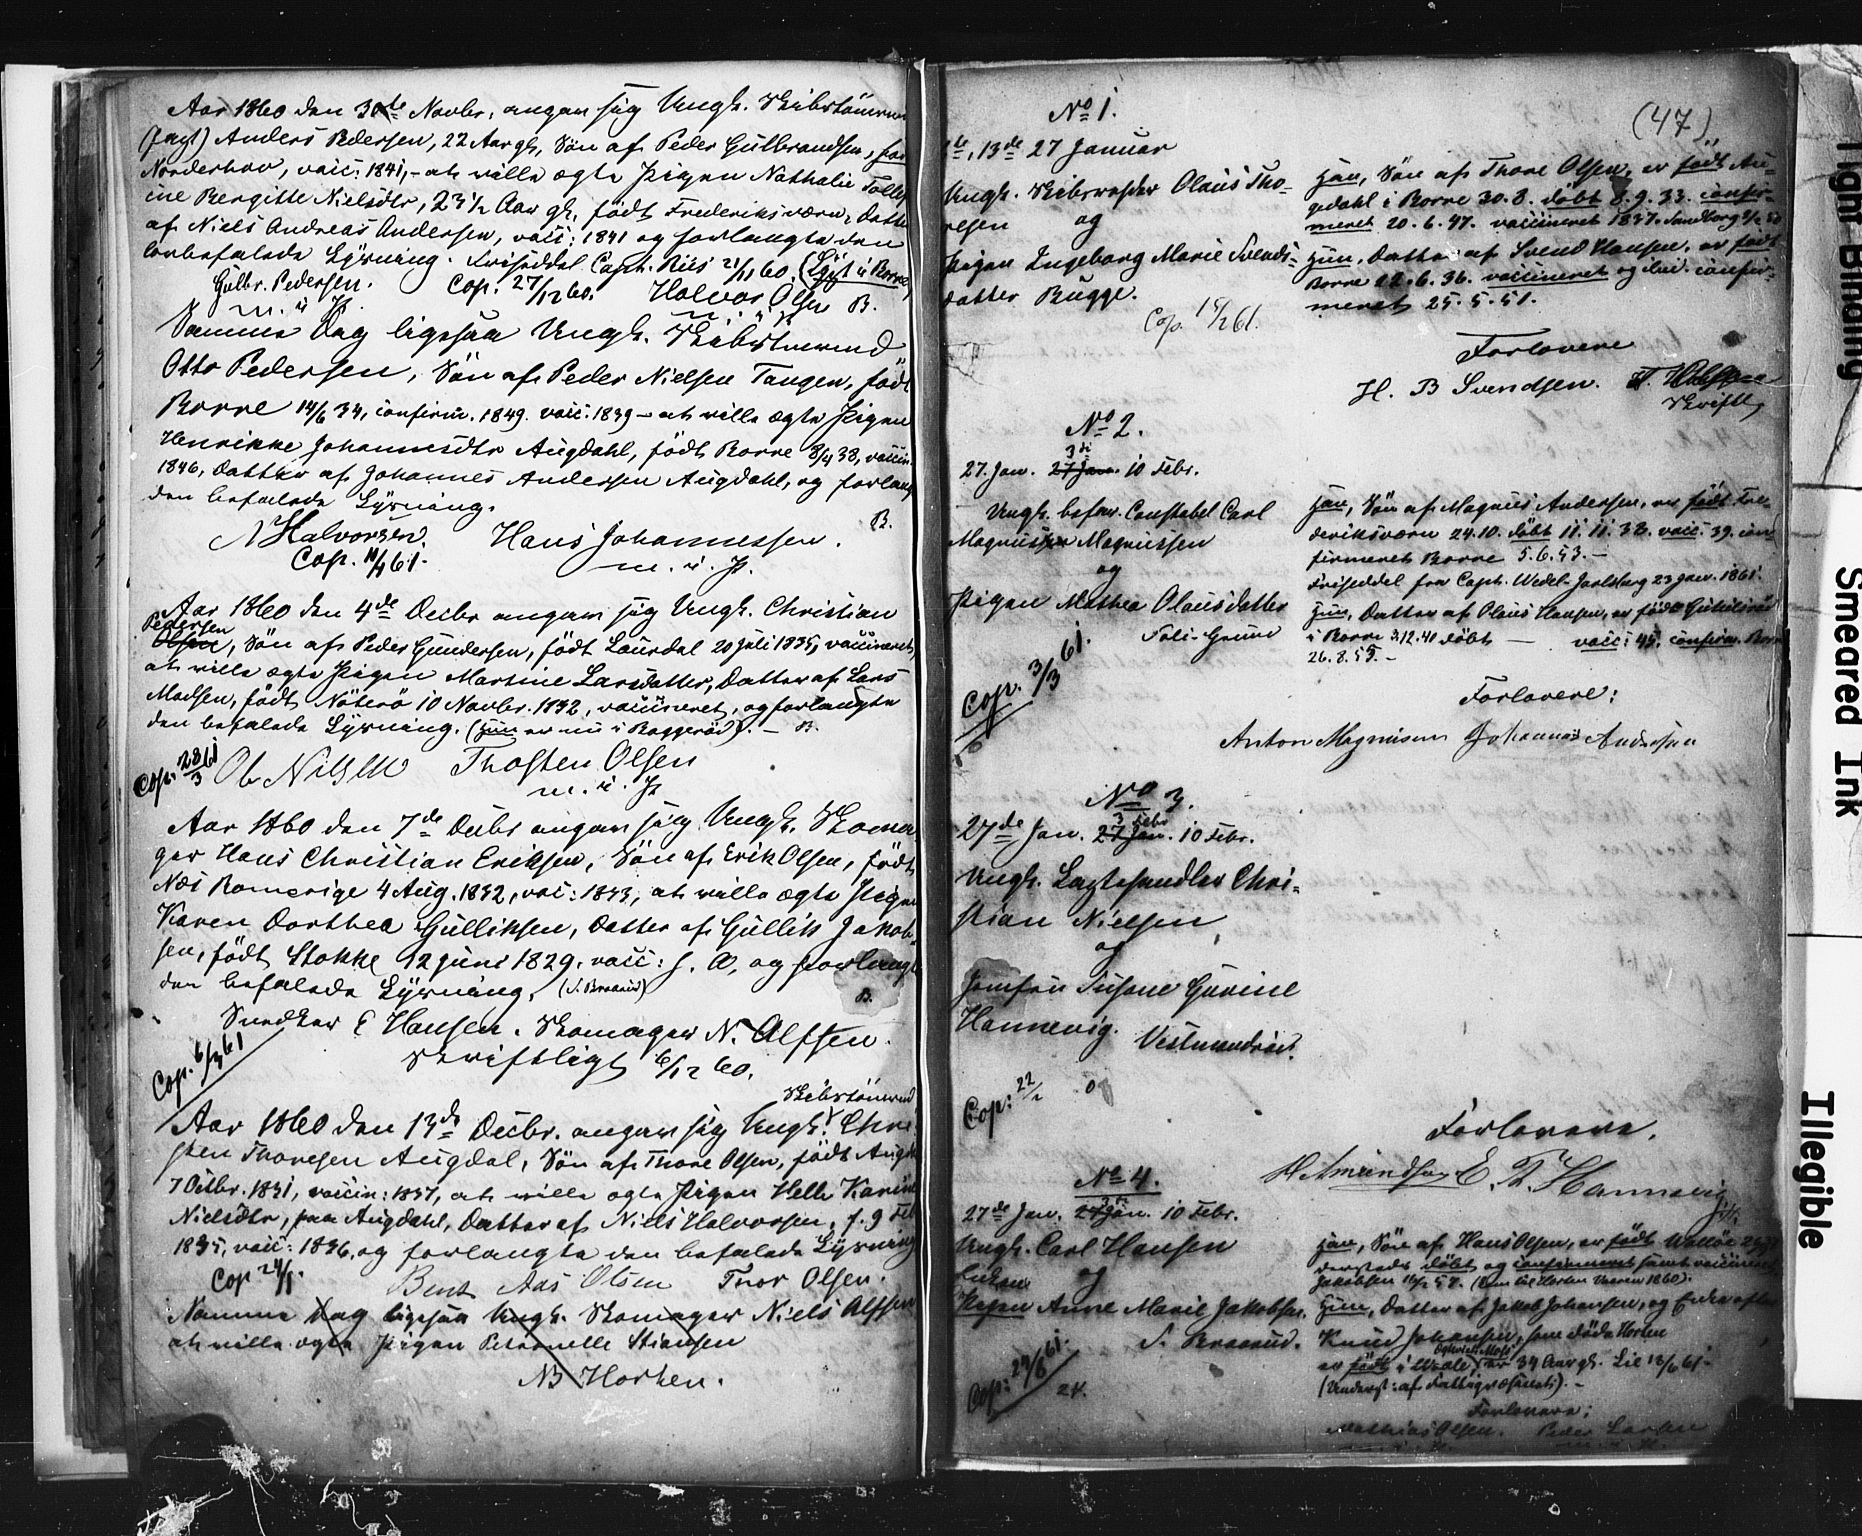 Aar 1860 den 30te Novbr. angav sig Ungk. Skibstømmermd
(Jagt) Anders Pedersen, 22 Aar gl., Søn af Peder Gulbrandsen, fød
Norderhov, vacc. 1841, - at ville ægte Pigen Nathalie
ine Bergitte Nielsdtr, 23½ Aar gl., født Frederiksværn, Datter
af Niels Andreas Andersen, vacc: 1841 og forlangte den
lovbefalede Lysning. Friseddel Capt. Riis 21/11 60.
Gulbr. Pedersen. Cop. 27/12 60. Halvor Olsen B.
m. i. P.
Samme Dag ligesaa Ungk. Skibstmrmd
Otto Pedersen, Søn af Peder Nielsen Tangen, født
Borre 14/6 34, confirm. 1849. vacc: 1839 - at ville ægte Pigen
Henrikke Johannesdtr Augdahl, født Borre 8/4 38, vaccin.
1846, Datter af Johannes Andersen Augdahl, og forlang
den befalede Lysning.
N Halvorsen. Hans Johannessen. B.
Cop. 10/1 61. m. i. P.
Aar 1860 den 4de Decbr angav sig Ungk. Christian
Pedersen
Olsen, Søn af Peder Gundersen, født Laurdal 20 Juli 1835, vaccineret,
at ville ægte Pigen Martine Larsdatter, Datter af Lars
Madsen, født Nöterö 10 Novbr. 1832, vaccineret, og forlangte
den befalede Lysning. (Hun er nu i Baggerød). - B.
Cop. 28/3 61 Ole Nilsen Thosten Olsen
m. i. P
Aar 1860 den 7de Decbr angav sig Ungk. Skoma
ger Hans Christian Eriksen, Søn af Erik Olsen, født
Næs Romerige 4 Aug. 1832, vac: 1833, at ville ægte Pigen
Karen Dorthea Gulliksen, Datter af Gullik Jakob-
sen, født Stokke 12 Juni 1829, vacc: s. A, og forlangte
den befalede Lysning. B.
Snedker E Hansen. Skomager N. Alfsen.
Cop. 6/3 61 Skriftligt 6/12 60.
Skibstömrmd
Aar 1860 den 13de Decbr. angav sig Ungk. Chri
sten Thoresen Augdal, Søn af Thore Olsen, født Augd
7 Octbr. 1831, vaccin: 1837, at ville ægte Pigen Helle Karine
Nielsdtr, paa Augdahl, Datter af Niels Halvorsen, f. 9 Feb
1835, vacc: 1836, og forlangte den befalede Lysning
Cop 24/1. Bent Aas Olsen Thor Olsen.
Samme Dag ligesaa Ungk. Skomager Niels Alfsen
at ville ægte Pigen Petronelle Stiansen
NB Horten.
(47)
No 1.
13de 27 Januar
Ungk. Skibsreder Olaus Tho-
resen og
Pigen Ingeborg Marie Svends-
datter Bugge.
Cop. 14/2 61.
Han, Søn af Thore Olsen, er født Au-
gedahl i Borre 30.8. döbt 8.9.33. confir-
meret 20.6.47. vaccineret 1837.
Hun, Datter af Svend Hansen, er født
Borre 22.6.36. vaccineret og confir-
meret 25.5.51.
Forlovere
H. B Svendsen.
Skriftl.
No 2.
3de
27. Jan. 27 Jan. 10 Febr.
Ungk. befar. Constabel Carl
Magnussen Magnussen
og
Pigen Mathea Olausdatter
Cop. 3/3 61.
Han, Søn af Magnus Andersen, er født Fre-
deriksværn 24.10. döbt 11.11.38. vacc: 39. con
firmeret Borre 5.6.53. -
Friseddel fra Capt. Wedel-Jarlsberg 23 Janr. 1861.
Hun, Datter af Olaus Hansen, er født
i Borre 3.12.40 döbt — vacc: 45, confirm. Borre
26.8.55. -
Forlovere:
Anton Magnusen Johannes Andersen
No 3.
3 Febr
27de Jan. 27 Jan. 10 Febr.
Ungk. Lægtehandler Chri-
stian Nielsen
og
Jomfru Susane Gurine
Hannevig.
Cop: 22/2
Forlovere.
H Amundsen E. T. Hannevig
No 4.
3de
27de Jan. 27 Jan. 10 Febr.
Ungk. Carl Hansen
og
Pigen Anne Marie Jakobsen.
Cop: 24/6 61.
24.
Han, Søn af Hans Olsen, er født
dersteds döbt og confirmeret samt vaccineret
Hun, Datter af Jakob Johansen, og Enke efter
Knud Johansen, som døde Horten
er født i 34 Aar gl.
(Underst: af Fattigvæsenet). -
Forlovere:
Mathias Olsen. Peder Larsen
Tight Binding
Smeared Ink
Illegible